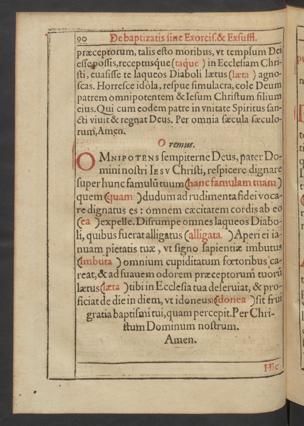 90 De baptizatis sine Exorcis. & Exsuffl.
præceptorum, talis esto moribus, vt templum Dei
esse possis, receptusque (taque ) in Ecclesiam Chri-
sti, euasisse te laqueos Diaboli lætus (læta ) agno-
scas. Horresce idola, respue simulacra, cole Deum
patrem omnipotentem & Iesum Christum filium
eius. Qui cum eodem patre in vnitate Spiritus san-
cti viuit & regnat Deus. Per omnia sæcula sæculo-
rum, Amen.
Oremus.
OMNIPOTENS sempiterne Deus, pater Do-
mini nostri IESV Christi, respicere dignare
super hunc famulũ tuum (hanc famulam tuam )
quem (quam ) dudum ad rudimenta fidei voca-
re dignatus es: omnem cæcitatem cordis ab eo
(ea ) expelle. Disrumpe omnes laqueos Diabo-
li, quibus fuerat alligatus (alligata. ) Aperi ei ia-
nuam pietatis tuæ, vt signo sapientiæ imbutus
(imbuta ) omnium cupiditatum fœtoribus ca-
reat, & ad suauem odorem præceptorum tuorũ
lætus (læta ) tibi in Ecclesia tua deseruiat, & pro-
ficiat de die in diem, vt idoneus (idonea ) sit frui
gratia baptismi tui, quam percepit. Per Chri-
stum Dominum nostrum.
Amen.
Hic